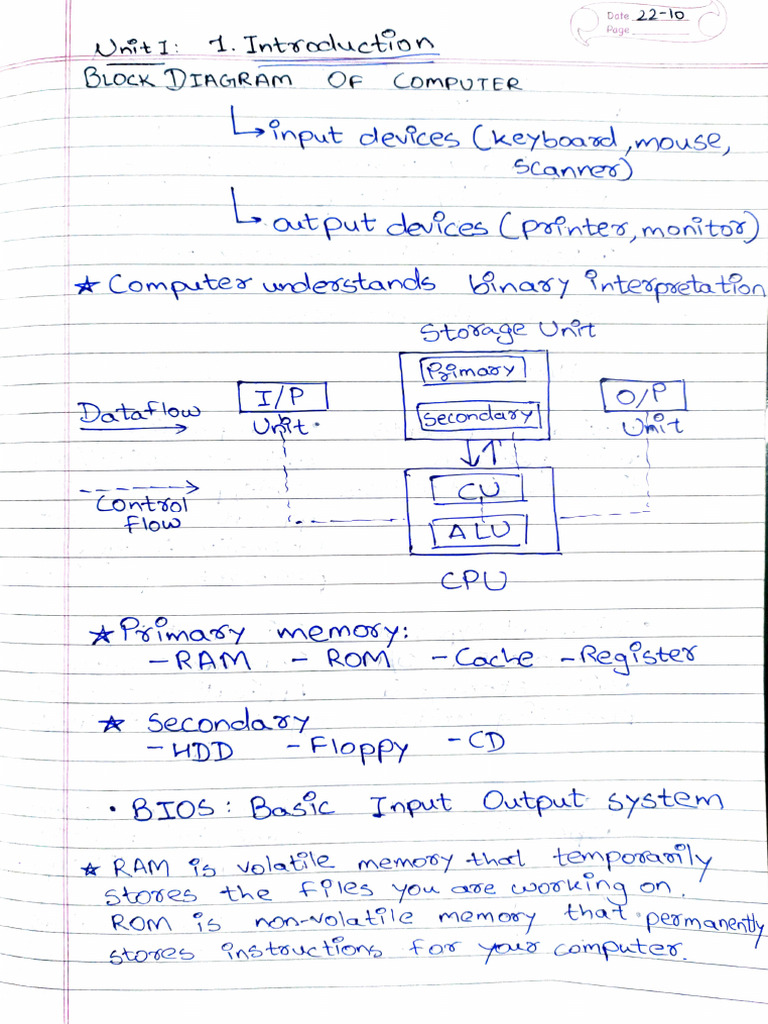 Date 22-10
Page
Unit I: 1. Introduction
BLOCK DIAGRAM OF COMPUTER
input devices (keyboard, mouse,
scanner)
output devices (printer, monitor)
★ Computer understands binary interpretation
Storage Unit
Primary
I/P
O/P
Dataflow
Secondary
Unit
Unit
CU
Control
flow
ALU
CPU
★ Primary memory:
- RAM - ROM - Cache - Register
★ Secondary
- HDD - Floppy - CD
• BIOS: Basic Input Output system
★ RAM is volatile memory that temporarily
stores the files you are working on.
ROM is non-volatile memory that permanently
stores instructions for your computer.